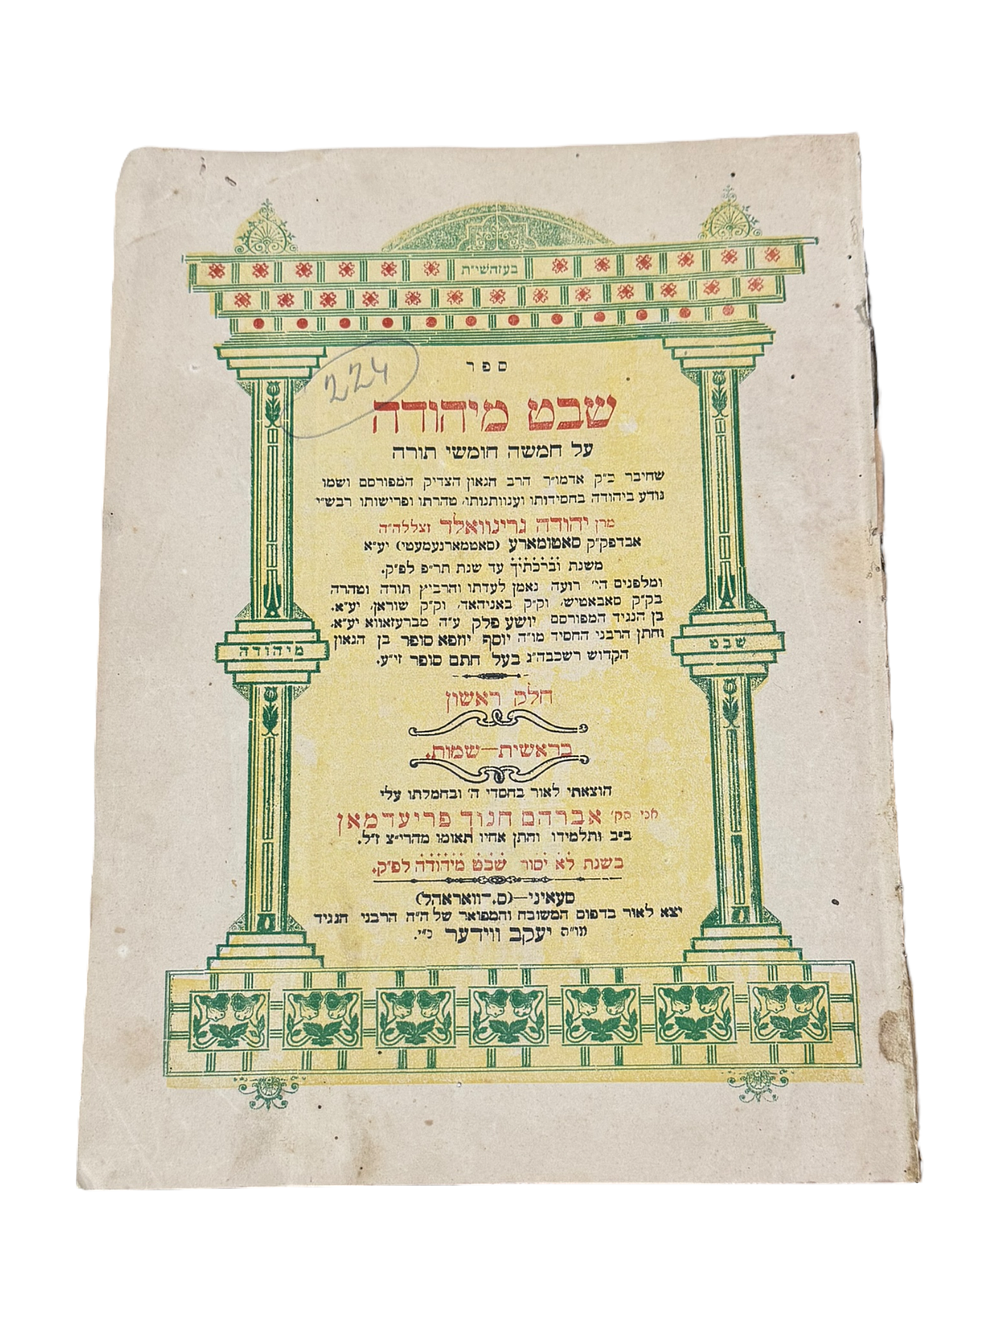 בעזהשי״ת
224
ספר
שבט מיהודה
על חמשה חומשי תורה
שחיבר כ״ק אדמו״ר הרב הגאון הצדיק המפורסם ושמו
נודע ביהודה בחסידותו וענוותנותו, טהרתו ופרישותו רבש״י
מרן יהודה גרינוואלד זצללה״ה
אבדפק״ק סאטומארע (סאטמארנעמעטי) יע״א
משנת וברכתיך עד שנת תר״פ לפ״ק.
ומלפנים הי׳ רועה נאמן לעדתו והרביץ תורה וטהרה
בק״ק סאבאטיש, וק״ק באניהאד, וק״ק שוראן, יע״א.
בן הנגיד המפורסם יושע פלק ע״ה מברעזאווא יע״א,
וחתן הרבני החסיד מו״ה יוסף יוזפא סופר בן הגאון
הקדוש רשכבה״ג בעל חתם סופר זי״ע.
שבט
מיהודה
חלק ראשון
בראשית—שמות.
הוצאתי לאור בחסדי ה׳ ובחמלתו עלי
אברהם חנוך פריעדמאן
ב״ב ותלמידו וחתן אחיו תאומו מהרי״צ ז״ל.
בשנת לא יסור שבט מיהודה לפ״ק.
סעאיני—(ס. דוואראהל)
יצא לאור בדפוס המשובח והמפואר של ה״ה הרבני הנגיד
מו״ה יעקב ווידער נ״י.